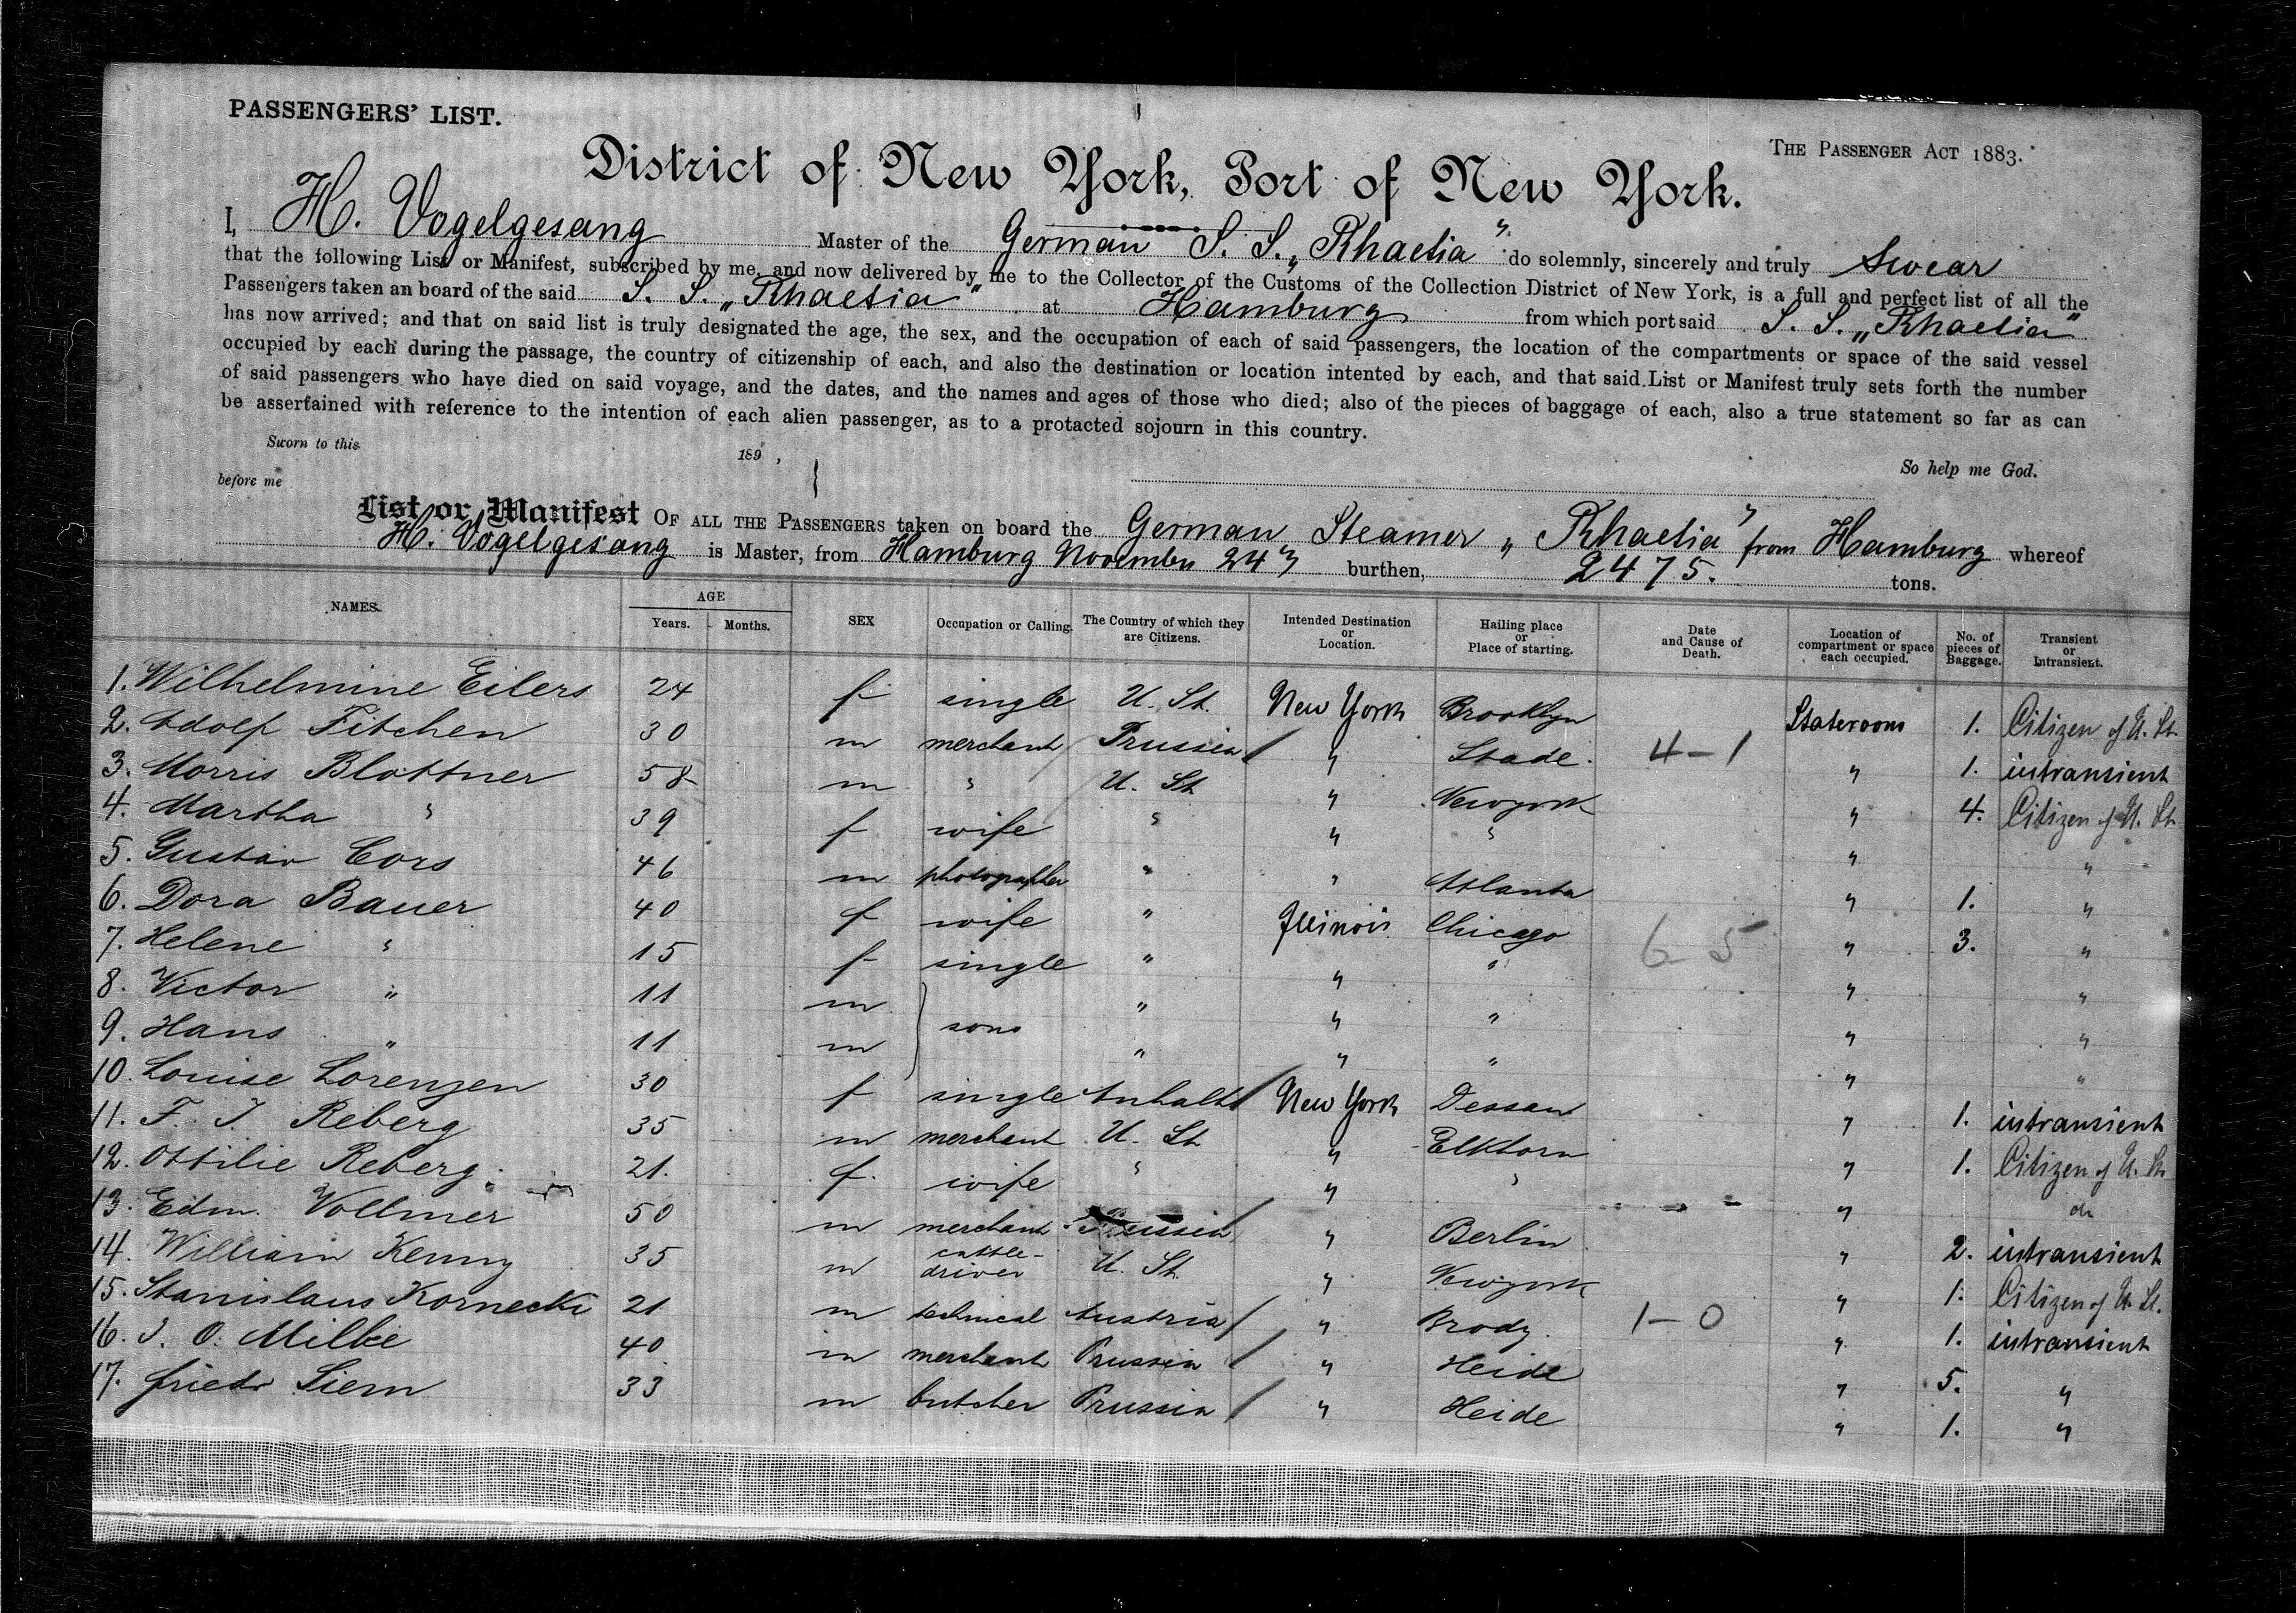 PASSENGERS' LIST.
THE PASSENGER ACT 1883.
District of New York, Port of New York.
I, H. Vogelgesang Master of the German S. S. „Rhaetia" do solemnly, sincerely and truly Swear
that the following List or Manifest, subscribed by me, and now delivered by me to the Collector of the Customs of the Collection District of New York, is a full and perfect list of all the
Passengers taken an board of the said S. S. „Rhaetia" at Hamburg from which port said S. S. „Rhaetia"
has now arrived; and that on said list is truly designated the age, the sex, and the occupation of each of said passengers, the location of the compartments or space of the said vessel
occupied by each during the passage, the country of citizenship of each, and also the destination or location intented by each, and that said List or Manifest truly sets forth the number
of said passengers who have died on said voyage, and the dates, and the names and ages of those who died; also of the pieces of baggage of each, also a true statement so far as can
be assertained with reference to the intention of each alien passenger, as to a protacted sojourn in this country.
Sworn to this 189 ,
So help me God.
before me
List or Manifest OF ALL THE PASSENGERS taken on board the German Steamer „Rhaetia" from Hamburg whereof
H. Vogelgesang is Master, from Hamburg November 24" burthen, 2475. tons.
NAMES. AGE Years. Months. SEX Occupation or Calling. The Country of which they are Citizens. Intended Destination or Location. Hailing place or Place of starting. Date and Cause of Death. Location of compartment or space each occupied. No. of pieces of Baggage. Transient or Intransient.
1. Wilhelmine Eilers 24 f single U. St. New York Brooklyn Stateroom 1. Citizen of U. St.
2. Adolf Fitchen 30 m merchant Prussia / " Stade. 4-1 " 1. intransient
3. Morris Blottner 58 m " U. St. " Newyork " 4. Citizen of U. St.
4. Martha " 39 f wife " " " " "
5. Gustav Cors 46 m photographer " " Atlanta " 1. "
6. Dora Bauer 40 f wife " Illinois Chicago 6 5 " 3. "
7. Helene " 15 f single " " " " "
8. Victor " 11 m } sons " " " " "
9. Hans " 11 m " " " " "
10. Louise Lorenzen 30 f single Anhalt / New York Dessau " 1. intransient
11. F. J. Reberg 35 m merchant U. St. " Elkhorn " 1. Citizen of U. St.
12. Ottilie Reberg. 21. f. wife " " " " do
13. Edm. Vollmer 50 m merchant Prussia / " Berlin " 2. intransient
14. William Kenny 35 m cattle-driver U. St. " Newyork " 1. Citizen of U. St.
15. Stanislaus Kornecki 21 m technical Austria / " Brody. 1-0 " 1. intransient
16. J. O. Milke 40 m merchant Prussia / " Heide " 5. "
17. Friedr Siem 33 m butcher Prussia / " Heide " 1. "